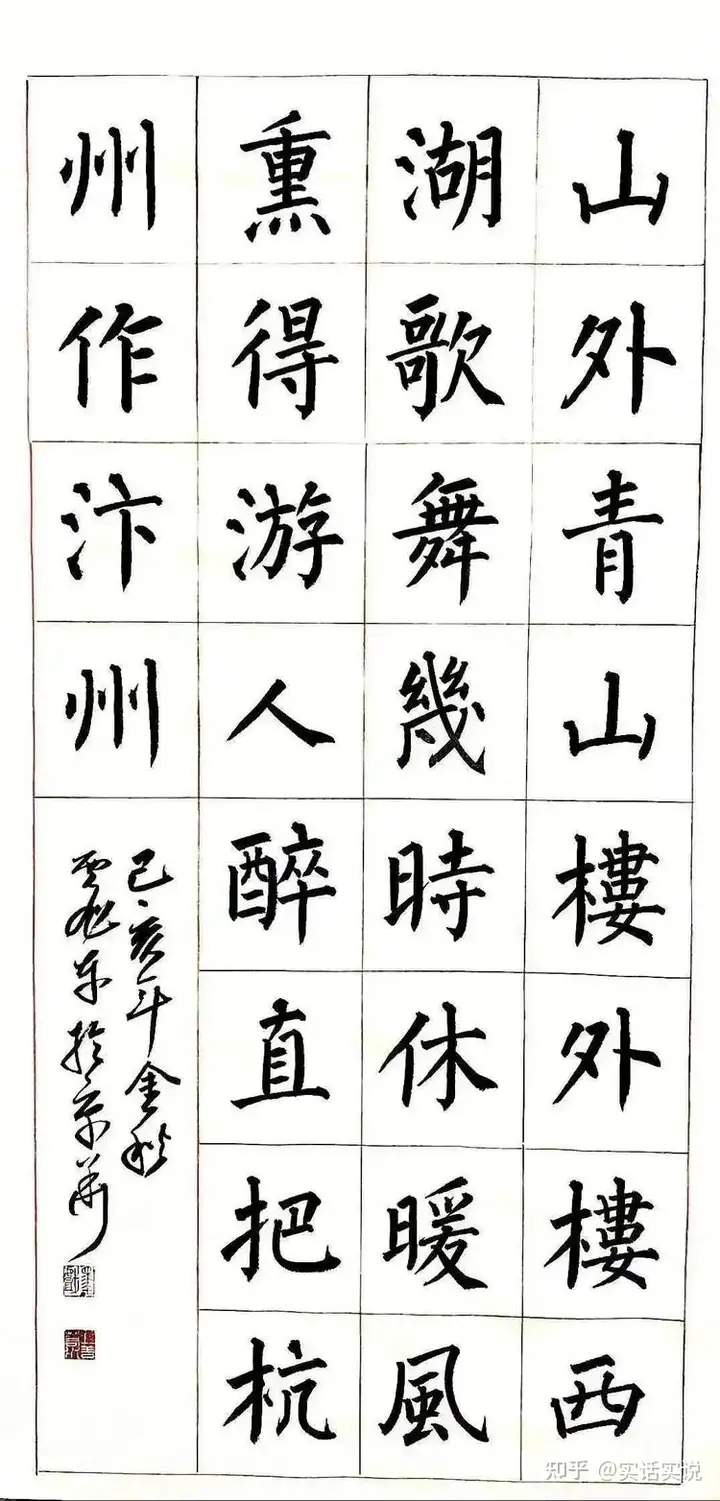 山外青山樓外樓西
湖歌舞幾時休暖風
熏得游人醉直把杭
州作汴州
己亥年金秋
於京華
知乎 @实话实说